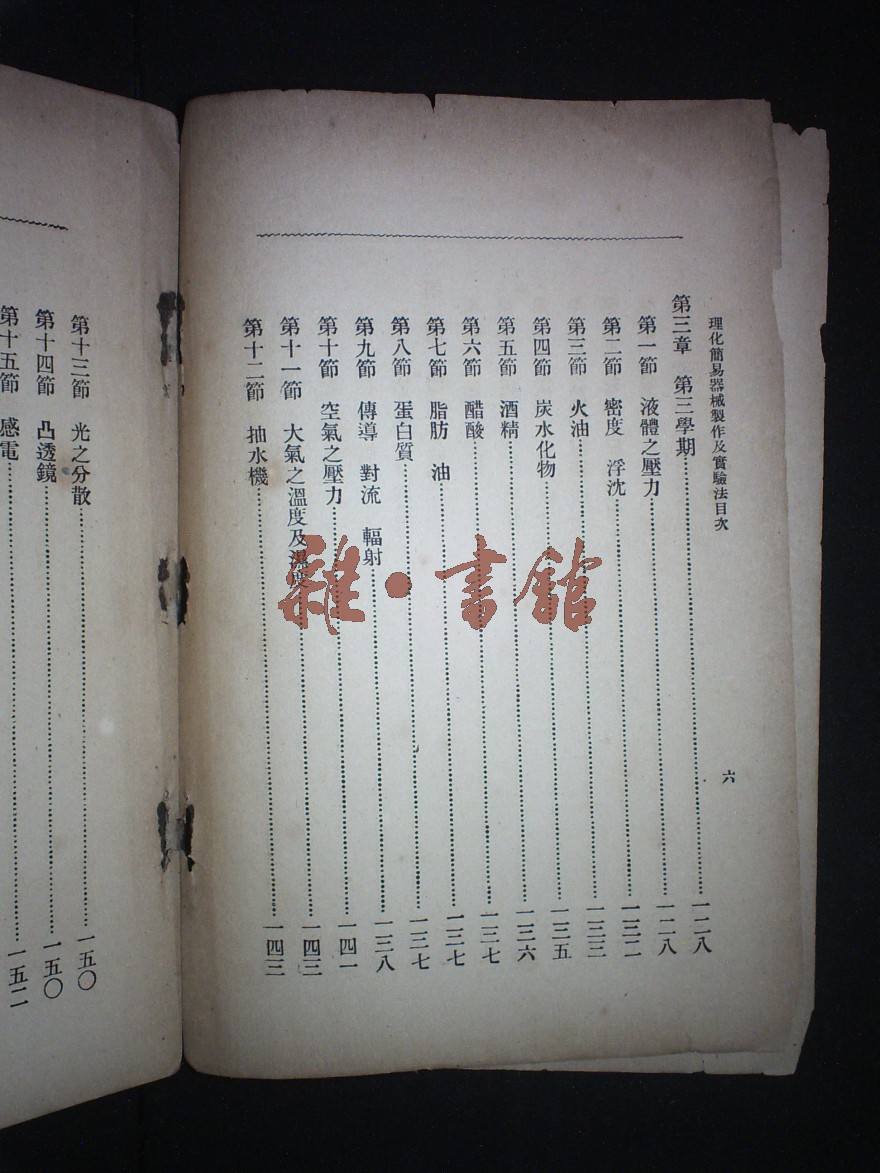 理化簡易器械製作及實驗法目次
六
第三章 第三學期……一二八
第一節 液體之壓力……一二八
第二節 密度 浮沈……一三二
第三節 火油……一三三
第四節 炭水化物……一三五
第五節 酒精……一三六
第六節 醋酸……一三七
第七節 脂肪 油……一三七
第八節 蛋白質……一三七
第九節 傳導 對流 輻射……一三八
第十節 空氣之壓力……一四一
第十一節 大氣之溫度及濕度……一四三
第十二節 抽水機……一四三
第十三節 光之分散……一五〇
第十四節 凸透鏡……一五〇
第十五節 感電……一五二
雜·書館